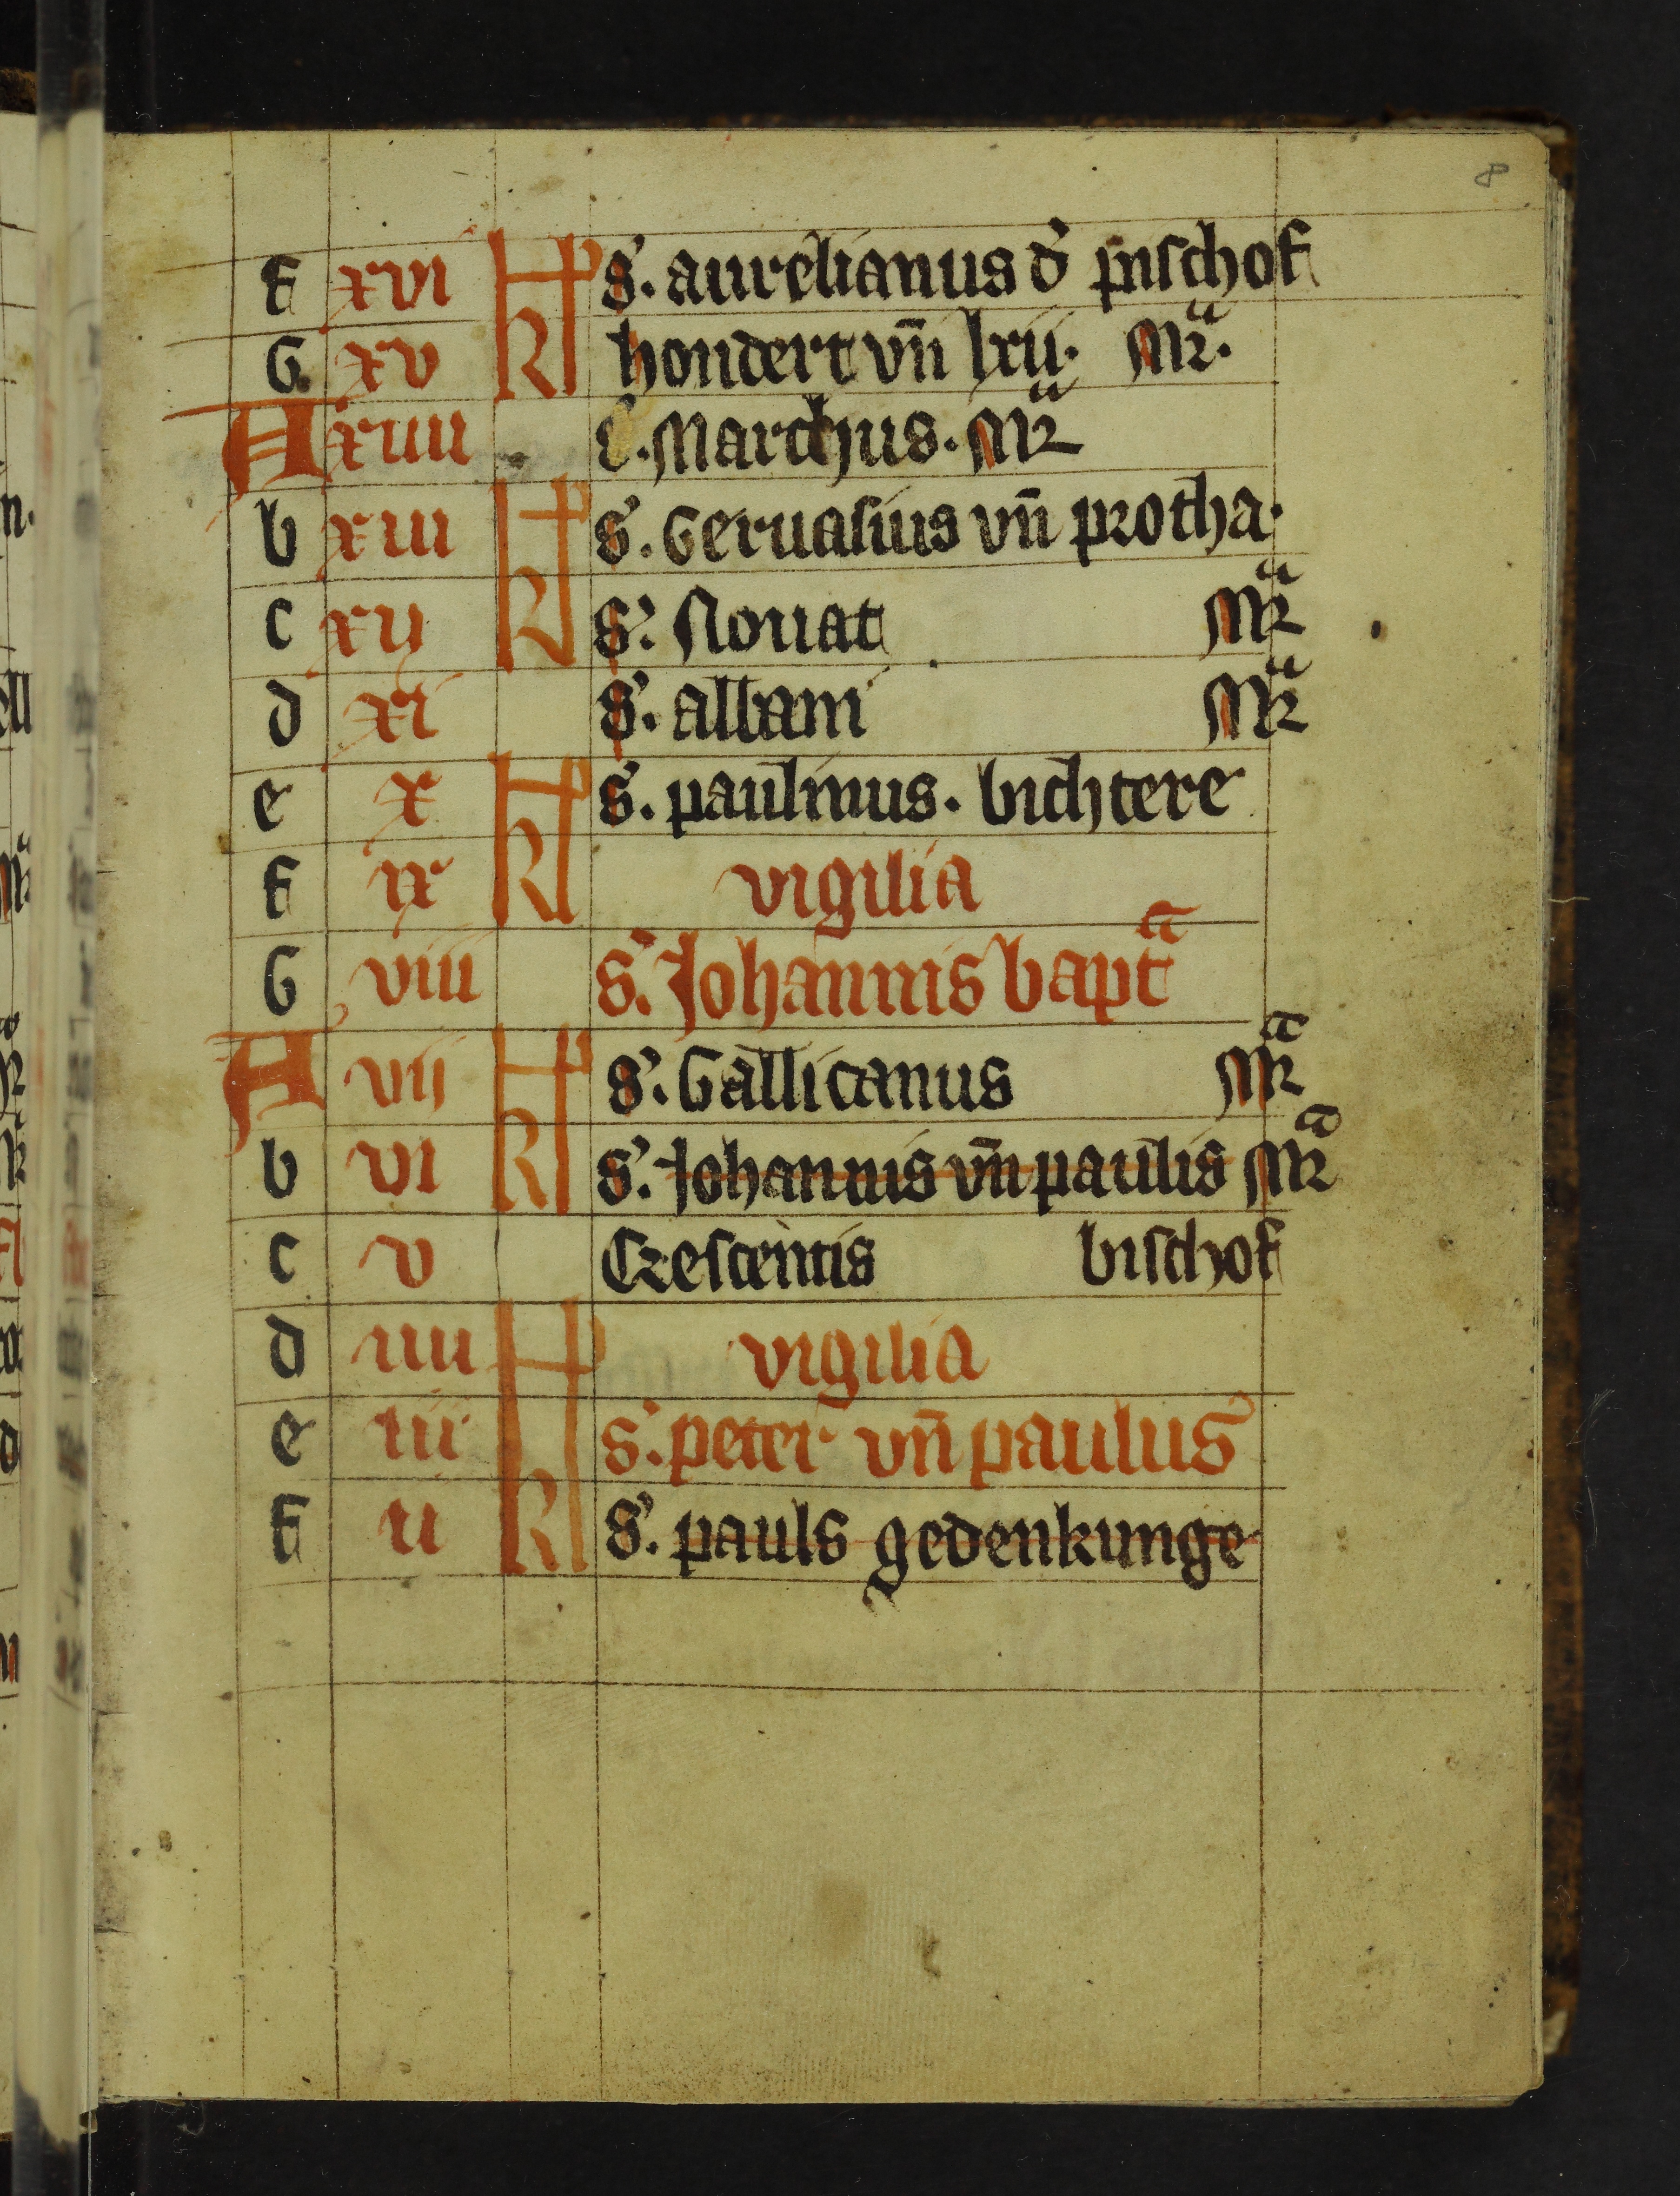 8
f xvi kl s'. aurelianus d' pischof
G. xv hondert vn̄ lxii. Mr̃.
A xiiii s. Marchus. Mr̃
b xiii kl s'. Geruasius vn̄ protha.
c xii s'. Nouat Mr̃
d xi s'. albani Mr̃
e x kl s'. paulinus. bichtere
f ix vigilia
G viii s'. Johannis bapt̃
A vii kl s'. Gallicanus Mr̃
b vi s'. Johannis vn̄ paulis Mr̃
c v Crescentis bischof
d iiii kl vigilia
e iii s'. peter vn̄ paulus
f ii s'. pauls gedenkunge